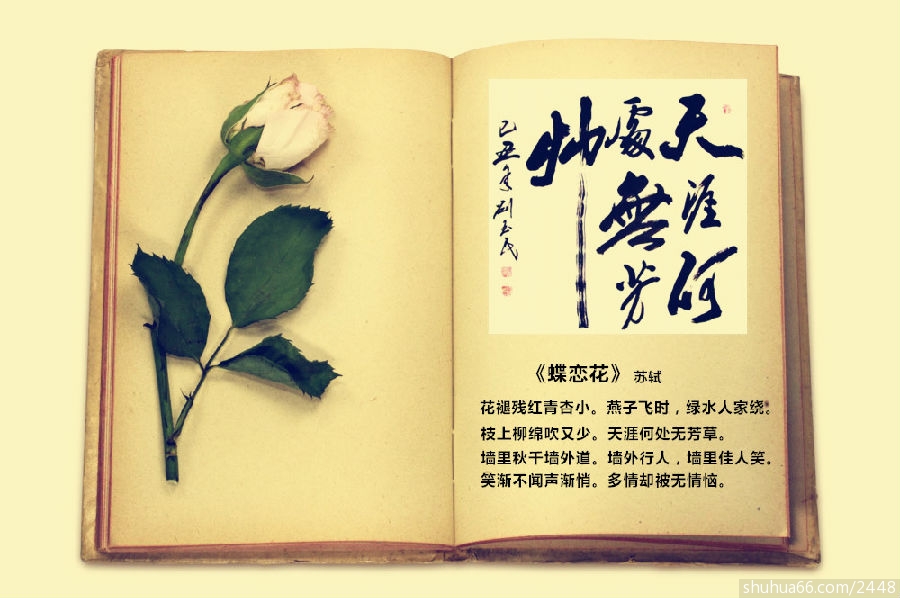 天涯何
處無芳
艸
己丑年劉玉民
《蝶恋花》 苏轼
花褪残红青杏小。燕子飞时，绿水人家绕。
枝上柳绵吹又少。天涯何处无芳草。
墙里秋千墙外道。墙外行人，墙里佳人笑。
笑渐不闻声渐悄。多情却被无情恼。
shuhua66.com/2448